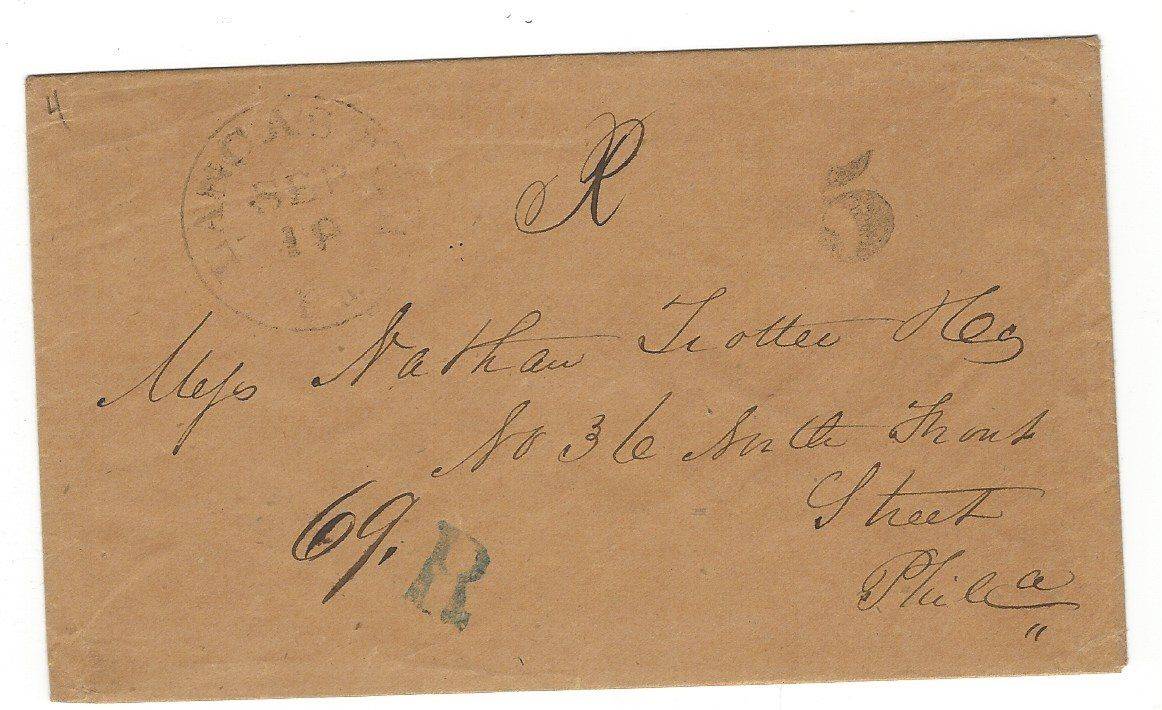 4
LANCASTER
SEP
18
Pa.
R
5
Mess Nathan Trotter & Co
No 36 North Front
Street
Phila
69.
R